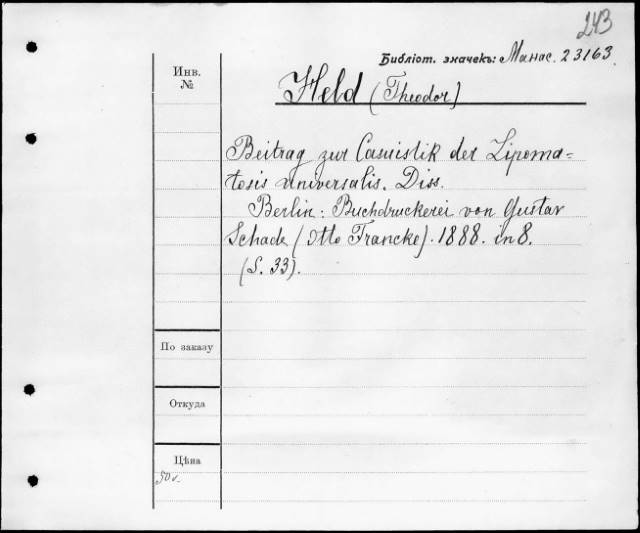 243
Библіот. значекъ: Манас. 23163.
Инв.
№
Held (Theodor)
Beitrag zur Casuistik der Lipoma=
tosis universalis. Diss.
Berlin: Buchdruckerei von Gustav
Schade (Otto Francke). 1888. in 8.
(S. 33).
По заказу
Откуда
Цѣна
50